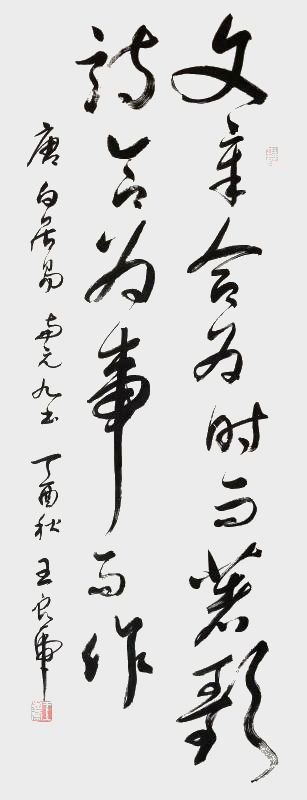 文章合为时而著歌
诗合为事而作
唐白居易与元九书 丁酉秋 王良